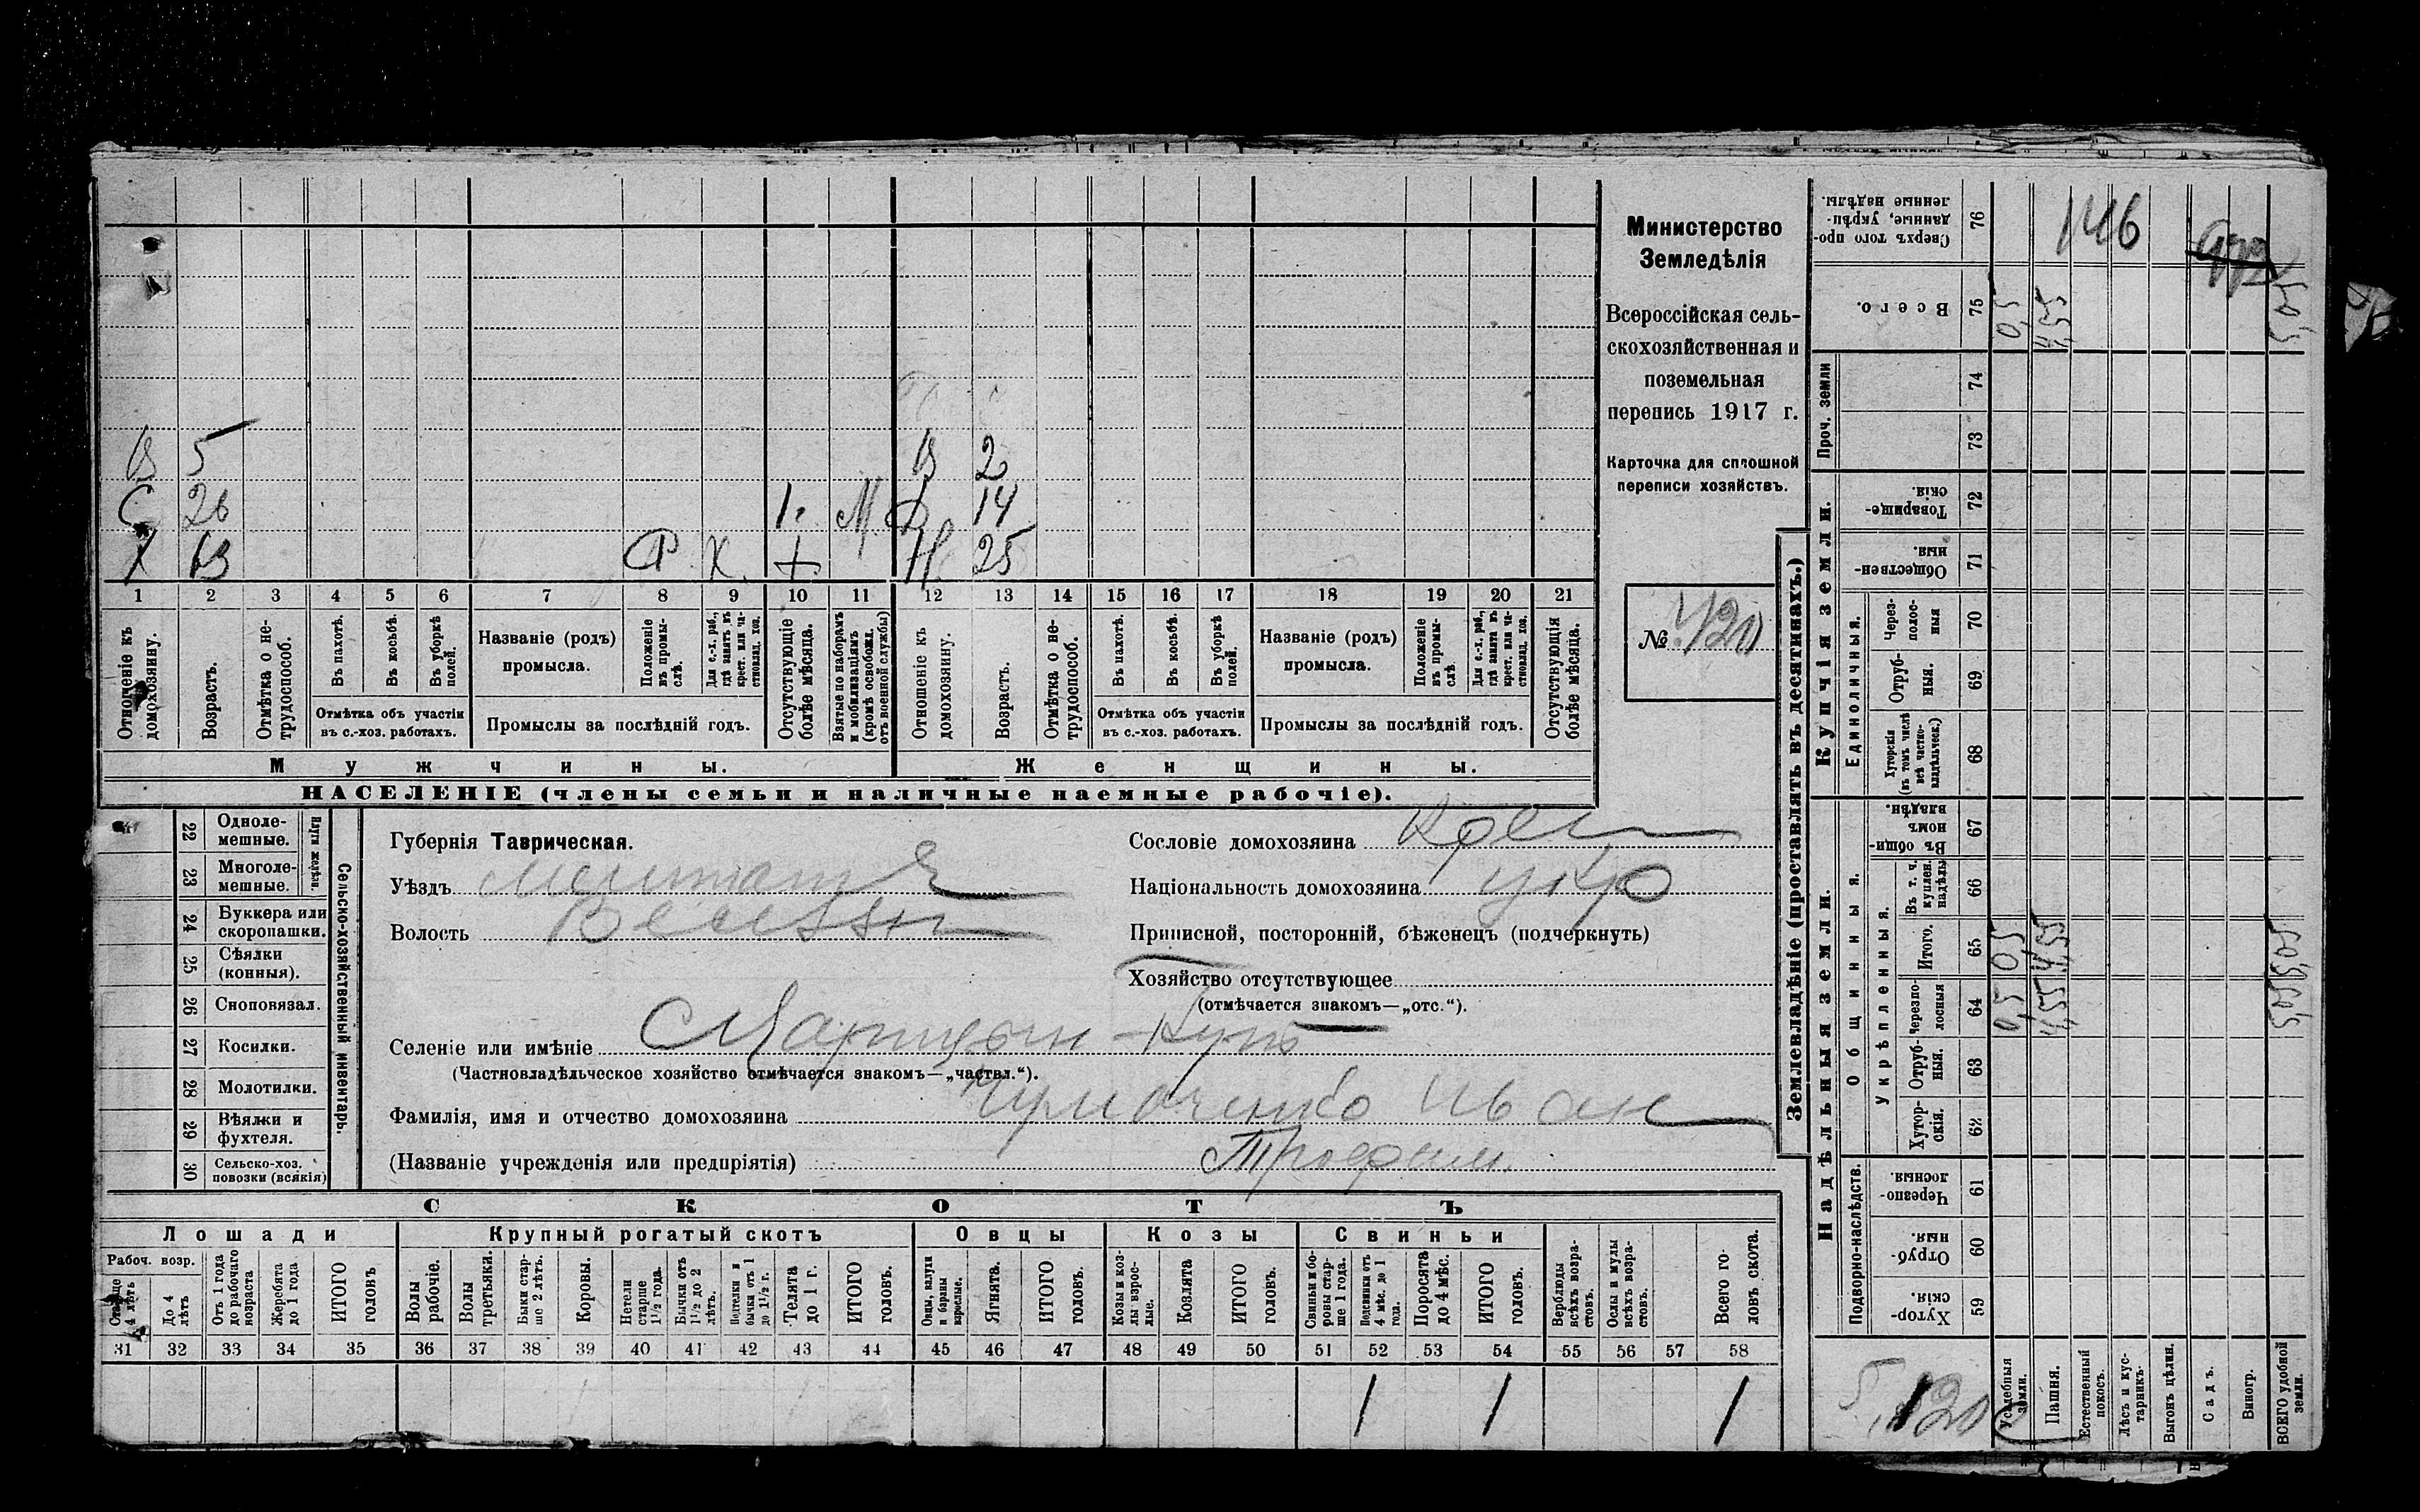 В 5 В 2
С 26 1. М Д 14
Х Р Х. + Н. 25
1 2 3 4 5 6 7 8 9 10 11 12 13 14 15 16 17 18 19 20 21
Отношеніе къ домохозяину.
Возрастъ.
Отмѣтка о нетрудоспособ.
Въ пахотѣ.
Въ косьбѣ.
Въ уборкѣ полей.
Отмѣтка объ участіи
въ с.-хоз. работахъ.
Названіе (родъ)
промысла.
Положеніе въ промыслѣ.
Для с.-х. раб., гдѣ занятъ въ крест. или частновлад. хоз.
Промыслы за послѣдній годъ.
Отсутствующіе болѣе мѣсяца.
Взятые по наборамъ и мобилизаціямъ (кромѣ освобожд. отъ военной службы)
Отношеніе къ домохозяину.
Возрастъ.
Отмѣтка о нетрудоспособ.
Въ пахотѣ.
Въ косьбѣ.
Въ уборкѣ полей.
Отмѣтка объ участіи
въ с.-хоз. работахъ.
Названіе (родъ)
промысла.
Положеніе въ промыслѣ.
Для с.-х. раб., гдѣ занята въ крест. или частновлад. хоз.
Промыслы за послѣдній годъ.
Отсутствующія болѣе мѣсяца.
Мужчины. Женщины.
НАСЕЛЕНІЕ (члены семьи и наличные наемные рабочіе).
Министерство
Земледѣлія
Всероссійская сель-
скохозяйственная и
поземельная
перепись 1917 г.
Карточка для сплошной
переписи хозяйствъ.
№ 420
22 Одноле-
мешные.
23 Многоле-
мешные.
Плуги желѣзн.
24 Буккера или
скоропашки.
25 Сѣялки
(конныя).
26 Сноповязал.
27 Косилки.
28 Молотилки.
29 Вѣялки и
фухтеля.
30 Сельско-хоз.
повозки (всякія)
Сельско-хозяйственный инвентарь.
Губернія Таврическая.
Уѣздъ
Волость
Селеніе или имѣніе
(Частновладѣльческое хозяйство отмѣчается знакомъ—„частвл.“).
Фамилія, имя и отчество домохозяина Иван
(Названіе учрежденія или предпріятія) Трофим.
Сословіе домохозяина Крест
Національность домохозяина укр
Приписной, посторонній, бѣженецъ (подчеркнуть)
Хозяйство отсутствующее
(отмѣчается знакомъ—„отс.“).
СКОТЪ
Лошади Крупный рогатый скотъ Овцы Козы Свиньи
Рабоч. возр.
Старше 4 лѣтъ
До 4 лѣтъ
Отъ 1 года до рабочаго возраста
Жеребята до 1 года
ИТОГО головъ
Волы рабочіе.
Волы третьяки.
Быки старше 2 лѣтъ.
Коровы.
Нетели старше 1½ года.
Бычки отъ 1½ до 2 лѣтъ.
Подтелки и бычки отъ 1 до 1½ г.
Телята до 1 г.
ИТОГО головъ.
Овцы, валухи и бараны взрослые.
Ягнята.
ИТОГО головъ.
Козы и козлы взрослые.
Козлята
ИТОГО головъ.
Свиньи и боровы старше 1 года.
Подсвинки отъ 4 мѣс. до 1 года.
Поросята до 4 мѣс.
ИТОГО головъ.
Верблюды всѣхъ возрастовъ.
Ослы и мулы всѣхъ возрастовъ.
Всего головъ скота.
31 32 33 34 35 36 37 38 39 40 41 42 43 44 45 46 47 48 49 50 51 52 53 54 55 56 57 58
1 1 1
Землевладѣніе (проставлять въ десятинахъ.)
Надѣльныя земли. Купчія земли. Проч. земли
Подворно-наслѣдств. Общинныя. Укрѣпленныя. Единоличныя.
Хуторскія. 59
Отрубныя. 60
Черезполосныя 61
Хуторскія. 62
Отрубныя. 63
Черезполосныя 64
Итого. 65
Въ т. ч. куплен. надѣлы 66
Въ общинномъ владѣн. 67
Хуторскія (въ томъ числѣ всѣ частновладѣльческ.) 68
Отрубныя. 69
Черезполосныя 70
Общественныя. 71
Товарищескія. 72
73
74
Всего. 75
Сверхъ того проданные, укрѣпленные надѣлы. 76
Усадебныя земли. 0,5 0,5 0,5
Пашня. 4,55 4,55 4,55
Естественный покосъ.
Лѣсъ и кустарникъ.
Выгонъ цѣлин.
Садъ.
Виногр.
ВСЕГО удобной земли. 5,05 5,05 5,05
146